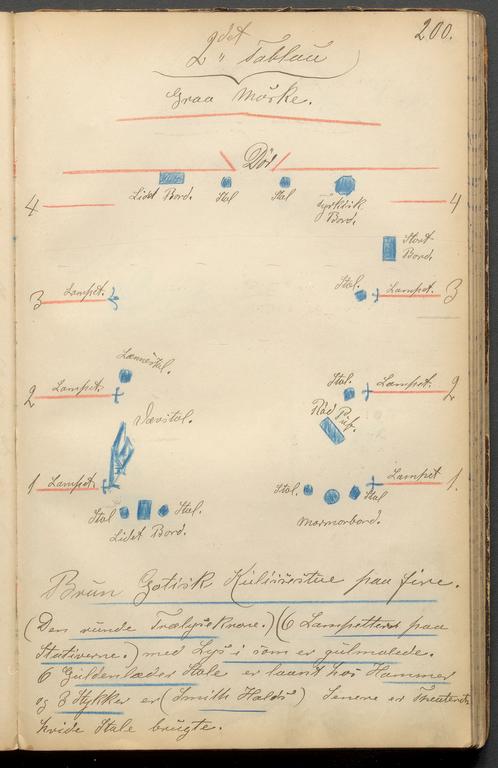 200.
2det
2 " Tablau
Graa Mørke.
Dör
Lidet Bord. Stol Stol Tyrkisk
Bord.
4 4
Stort
Bord.
3 Lampet. Stol. Lampet. 3
Lænnestol.
2 Lampet. Stol. Lampet. 2
Rød Puf.
1 Lampet. Lampet 1.
Stol Stol. Stol. Stol
Lidet Bord. Marmorbord.
Brun Gotisk Kulissestue paa fire.
(Den runde Trælysekrone.) (6 Lampetter paa
Stativerne.) med Lys i som er gulmalede.
6 Guldenlæder Stole er laant hos Hammer
og 3 Stykker er (Smith Halds) Senere er Theaterets
hvide Stole brugte.